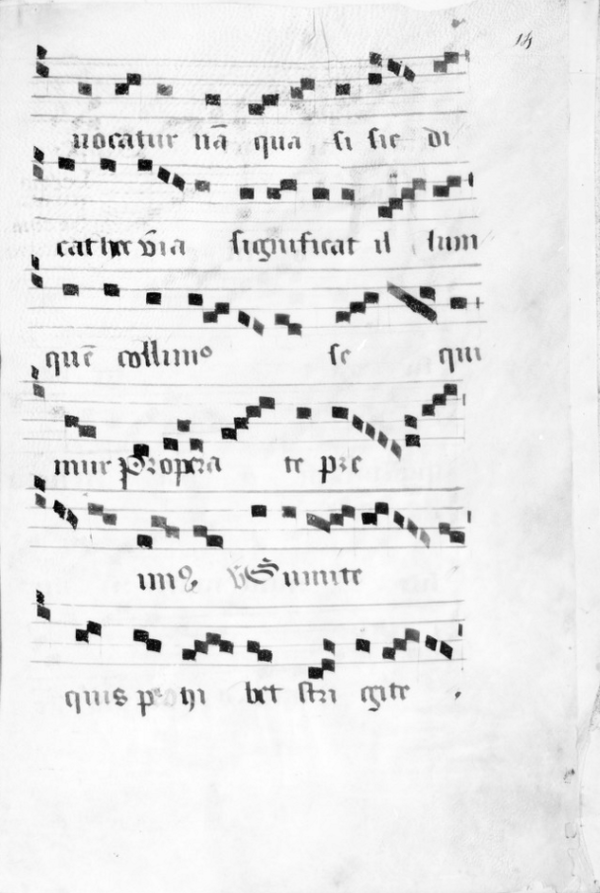 14
uocatur nā qua si sic di
cat hec v̄ia significat il lum
quē collimꝰ se qui
mur Propera te pre
quis pro hi bet stri gite